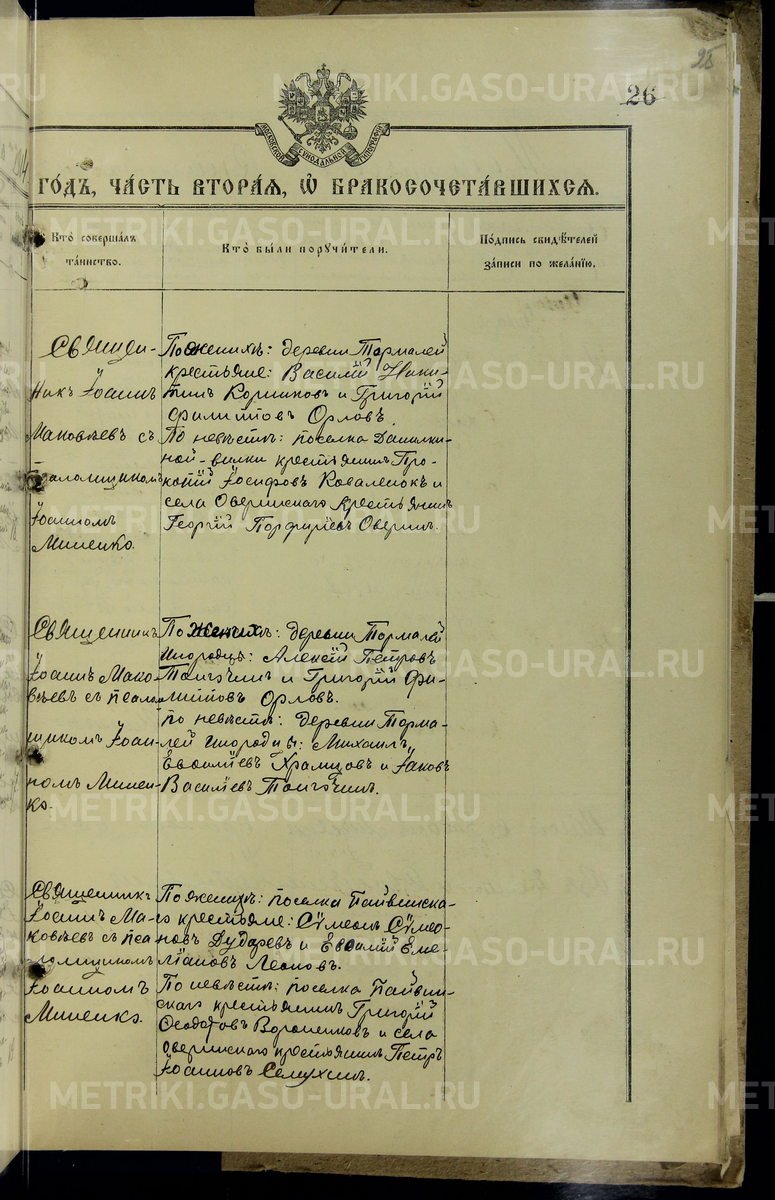 26
МОСКОВСКОЙ СѴНОДАЛЬНОЙ ТИПОГРАФІИ
ГОДЪ, ЧАСТЬ ВТОРАЯ, Ѡ БРАКОСОЧЕТАВШИХСЯ.
Кто совершалъ
таинство.
Кто были поручители.
Подпись свидѣтелей
записи по желанію.
Священ-
никъ Іоаннъ
Маковѣевъ съ
псаломщикомъ
Іоанномъ
Миненко.
По женихѣ: деревни Тормалей
крестьяне: Василій Ники-
тинъ Коршиковъ и Григорій
Филипповъ Орловъ.
По невѣстѣ: поселка Данилки-
ной-вилки крестьянинъ Про-
копій Іосифовъ Коваленокъ и
села Оверинскаго крестьянинъ
Георгій Порфирьевъ Оверинъ.
Священникъ
Іоаннъ Мако-
вѣевъ съ псалом-
щикомъ Іоан-
номъ Минен-
ко.
По женихѣ: деревни Тормалей
инородцы: Алексій Петровъ
и Григорій Фи-
липповъ Орловъ.
по невѣстѣ: деревни Торма-
лей инородцы: Михаилъ
Евѳиміевъ Храмцовъ и Іаковъ
Василіевъ
Священникъ
Іоаннъ Ма-
ковѣевъ съ пса-
ломщикомъ
Іоанномъ
Миненко.
По женихѣ: поселка Пайвинска-
го крестьяне: Сѵмеонъ Сѵмео-
новъ Дударевъ и Евѳимій Еме-
ліановъ Леоновъ.
По невѣстѣ: поселка Пайвин-
скаго крестьянинъ Григорій
Ѳеодотовъ Вороненковъ и села
Оверинскаго крестьянинъ Петръ
Іоанновъ Семухинъ.
METRIKI.GASO-URAL.RU